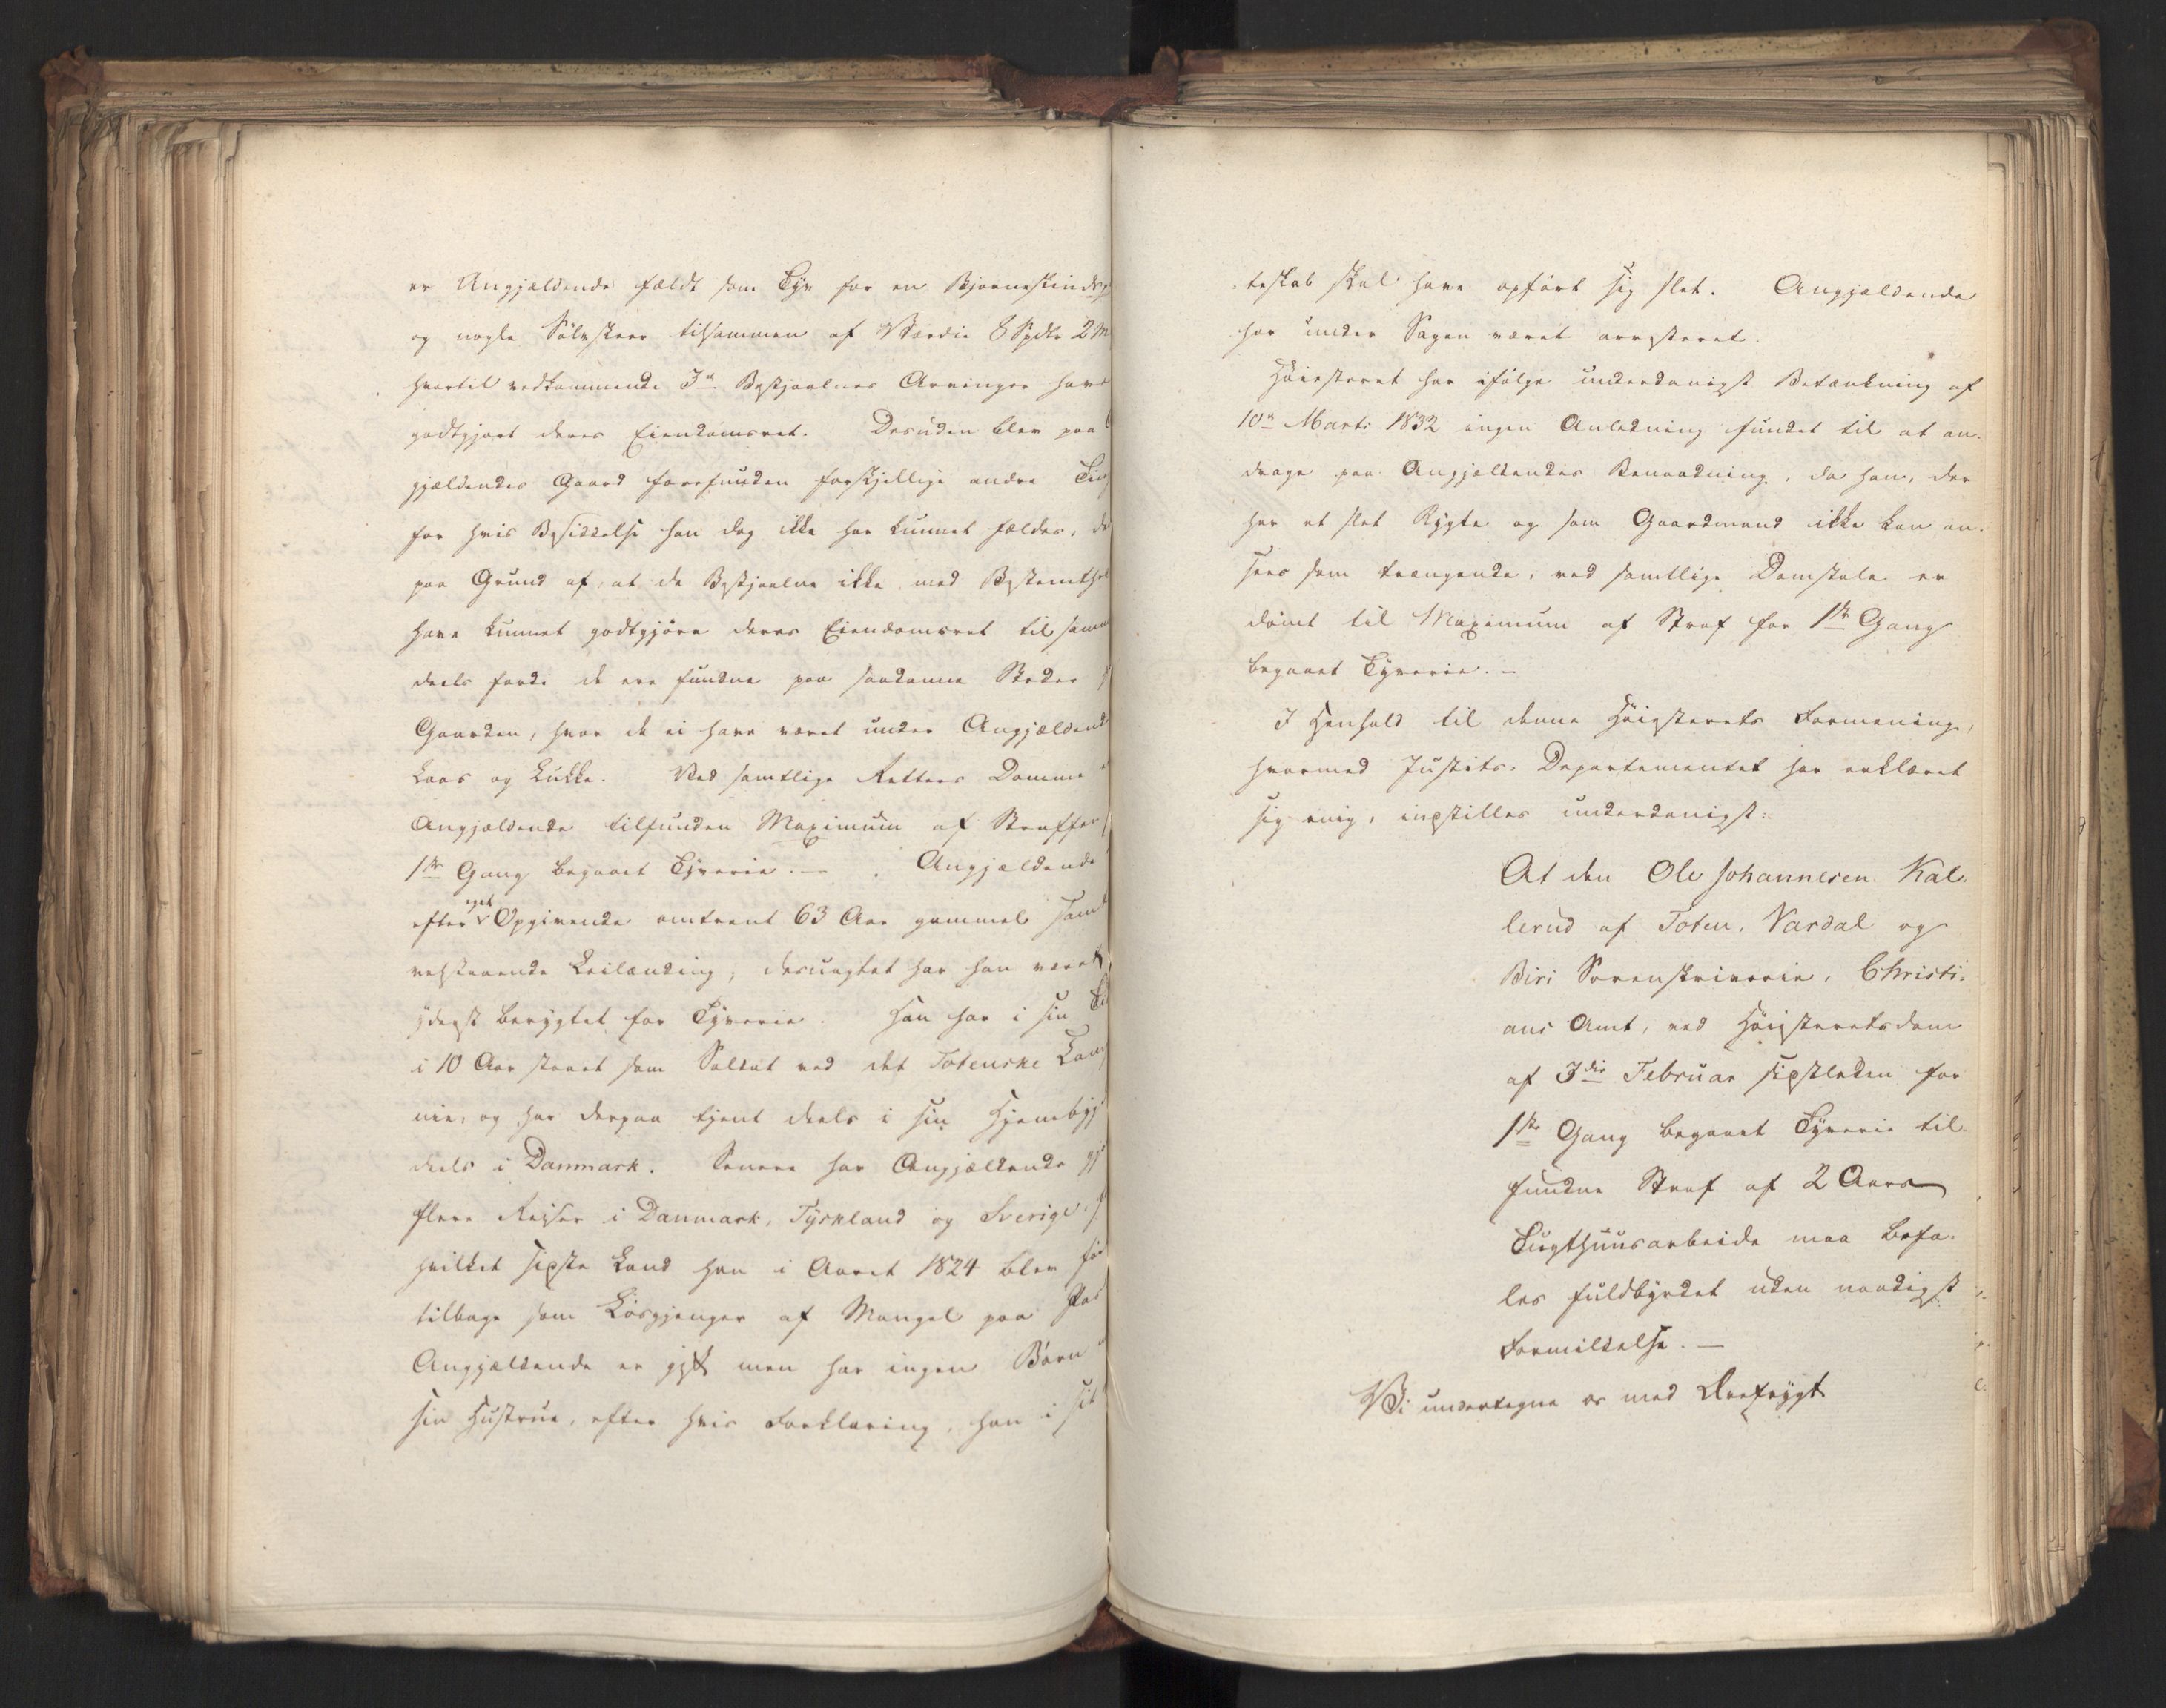 er Angjældende fældt som Tyv for en Bjørneskinds
og nogle Sølvskeer tilsammen af Værdie 8 Spdlr 2
hvortil vedkommende Bestjaalnes Arvinger have
godtgjort deres Eiendomsret. Desuden blev paa
gjældendes Gaard forefunden forskjellige andre Ting
for hvis Besiddelse han dog ikke har kunnet fældes,
paa Grund af, at de Bestjaalne ikke med Bestemthed
have kunnet godtgjöre deres Eiendomsret til samme
deels fordi de ere fundne paa saadanne Steder
Gaarden, hvor de ei have været under Angjældende
Laas og Lukke. Ved samtlige Retters Domme
Angjældende tilfunden Maximum af Straffen
1ste Gang begaaet Tyverie. — Angjældende
efter eget Opgivende omtrent 63 Aar gammel samt
velstaaende Leilænding, desuagtet har han været
yderst berygtet for Tyverie. Han har i sin
i 10 Aar staaet som Soldat ved det Totenske Com
nie, og har derpaa tjent deels i sin Hjembygd
deels i Danmark. Senere har Angjældende
flere Reiser i Danmark, Tyskland og Sverige,
hvilket sidste Land han i Aaret 1824 blev
tilbage som Løsgjenger af Mangel paa Pas
Angjældende er gift men har ingen Börn
sin Hustrue, efter hvis Forklaring, han i sit
teskab skal have opført sig slet. Angjældende
har under Sagen været arresteret.
Høiesteret har ifølge underdanigst Betænkning af
10n Marts 1832 ingen Anledning fundet til at an-
drage paa Angjældendes Benaadning, da han, der
har et slet Rygte og som Gaardmand ikke kan an-
sees som trængende, ved samtlige Domstole er
dömt til Maximum af Straf for 1ste Gang
begaaet Tyverie. —
I Henhold til denne Høiesterets Formening,
hvormed Justits-Departementet har erklæret
sig enig, indstilles underdanigst:
At den Ole Johannesen Kal-
lerud af Toten, Vardal og
Biri Sorenskriverie, Christi-
ans Amt, ved Høiesteretsdom
af 3die Februar sidstleden for
1ste Gang begaaet Tyverie til-
fundne Straf af 2 Aars
Tugthuusarbeide maa befa-
les fuldbyrdet uden naadigst
Formildelse. —
Vi undertegne os med Ærefrygt